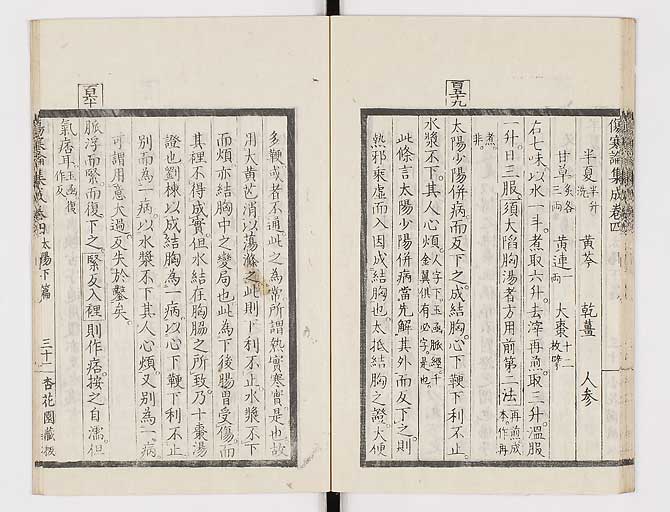 傷寒論集成卷四
半夏半升洗 黃芩 乾薑 人參
甘草炙各三兩 黃連一兩 大棗十二枚擘
右七味以水一斗。煮取六升。去滓再煎。取三升。溫服
一升。日三服。須大陷胸湯者方用前第二法。再煎成本作再
煮非。
百五十九
太陽少陽併病而反下之。成結胸。心下鞕下利不止。
水漿不下。其人心煩。人字下玉函脈經千金翼俱有必字。是也。
此條言太陽少陽併病當先解其外而反下之。則
熱邪乘虛而入因成結胸也。大抵結胸之證。大便
多鞕或者不通。此之為常。所謂熱實寒實。是也。故
用大黃芒消以蕩滌之。此則下利不止水漿不下
而煩亦結胸中之變局也。此為下後腸胃受傷而
其裡不得成實。但水結在胸脇之所致。乃十棗湯
證也。劉棟以成結胸為一病。以心下鞕下利不止
別而為一病。以水漿不下其人心煩。又別為一病
可謂用意太過。反失於鑿矣。
百六十
脈浮而緊。而復下之。緊反入裡。則作痞。按之自濡。但
氣痞耳。玉函復作反。
傷寒論集成卷四 太陽下篇 三十一 杏花園藏板